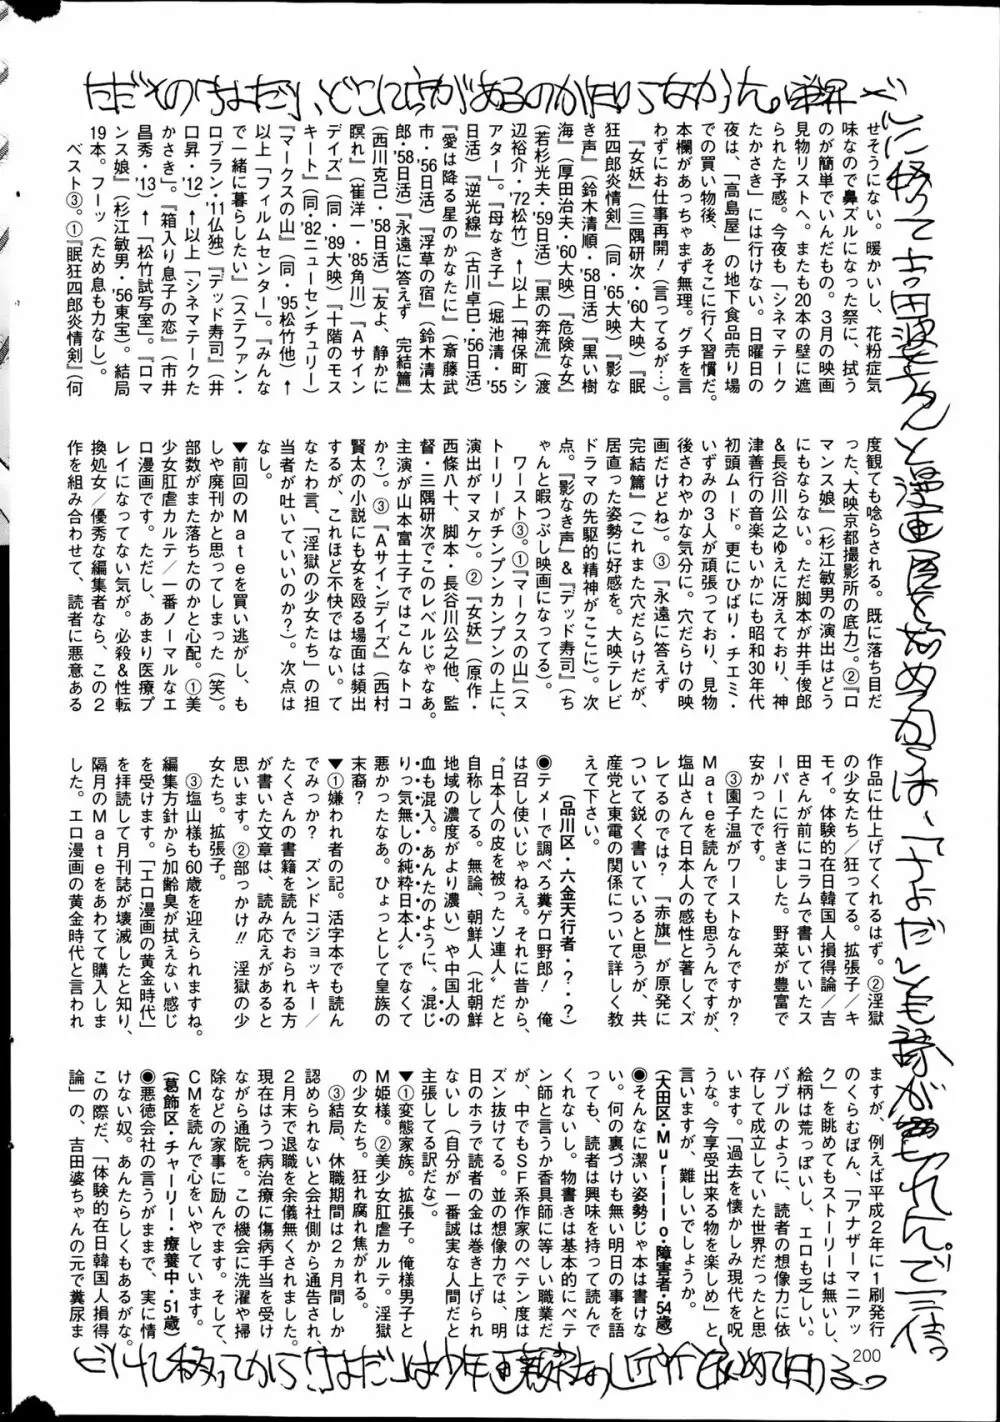 せそうにない。暖かいし、花粉症気
味なので鼻ズルになった祭に、拭う
のが簡単でいんだもの。3月の映画
見物リストへ。またも20本の壁に遮
られた予感。今夜も「シネマテーク
たかさき」には行けない。日曜日の
夜は、「高島屋」の地下食品売り場
での買い物後、あそこに行く習慣だ。
本欄があっちゃまず無理。グチを言
わずにお仕事再開!(言ってるが…。)
『女妖』(三隅研次・'60大映)『眠
狂四郎炎情剣』(同・'65大映)『影な
き声』(鈴木清順・'58日活)『黒い樹
海』(厚田治夫・'60大映)『危険な女』
(若杉光夫・'59日活)『黒の奔流』(渡
辺裕介・'72松竹)↑以上「神保町シ
アター」。『母なき子』(堀池清・'55
日活)『逆光線』(古川卓巳・'56日活)
『愛は降る星のかなたに』(斎藤武
市・'56日活)『浮草の宿』(鈴木清太
郎・'58日活)『永遠に答えず 完結篇』
(西川克己・'58日活)『友よ、静かに
瞑れ』(崔洋一・'85角川)『Aサイン
デイズ』(同・'89大映)『十階のモス
キート』(同・'82ニューセンチュリー)
『マークスの山』(同・'95松竹他)↑
以上「フィルムセンター」。『みんな
で一緒に暮らしたい』(ステファン・
ロブラン・'11仏独)『デッド寿司』(井
口昇・'12)↑以上「シネマテークた
かさき」。『箱入り息子の恋』(市井
昌秀・'13)↑「松竹試写室」。『ロマ
ンス娘』(杉江敏男・'56東宝)。結局
19本。フーッ(ため息も力なし)。
ベスト③。①『眠狂四郎炎情剣』(何
度観ても唸らされる。既に落ち目だ
った、大映京都撮影所の底力)。②『ロ
マンス娘』(杉江敏男の演出はどう
にもならない。ただ脚本が井手俊郎
&長谷川公之ゆえに冴えており、神
津善行の音楽もいかにも昭和30年代
初頭ムード。更にひばり・チエミ・
いずみの3人が頑張っており、見物
後さわやかな気分に。穴だらけの映
画だけどね)。③『永遠に答えず
完結篇』(これまた穴だらけだが、
居直った姿勢に好感を。大映テレビ
ドラマの先駆的精神がここに)。次
点。『影なき声』&『デッド寿司』(ち
ゃんと暇つぶし映画になってる)。
ワースト③。①『マークスの山』(ス
トーリーがチンプンカンプンの上に、
演出がマヌケ)。②『女妖』(原作・
西條八十、脚本・長谷川公之他、監
督・三隅研次でこのレベルじゃなあ。
主演が山本富士子ではこんなトコ
か?)。③『Aサインデイズ』(西村
賢太の小説にも女を殴る場面は頻出
するが、これほど不快ではない。て
なたわ言、「淫獄の少女たち」の担
当者が吐いていいのか?)。次点は
なし。
▼前回のMateを買い逃がし、も
しや廃刊かと思ってしまった(笑)。
部数がまた落ちたのかと心配。①美
少女肛虐カルテ/一番ノーマルなエ
ロ漫画です。ただし、あまり医療プ
レイになってない気が。必殺&性転
換処女/優秀な編集者なら、この2
作を組み合わせて、読者に悪意ある
作品に仕上げてくれるはず。②淫獄
の少女たち/狂ってる。拡張子/キ
モイ。体験的在日韓国人損得論/吉
田さんが前にコラムで書いていたス
ーパーに行きました。野菜が豊富で
安かったです。
③園子温がワーストなんですか?
Mateを読んでても思うんですが、
塩山さんて日本人の感性と著しくズ
レてるのでは? 『赤旗』が原発に
ついて鋭く書いていると思うが、共
産党と東電の関係について詳しく教
えて下さい。
(品川区・六金天行者・?・?)
◉テメーで調べろ糞ゲロ野郎! 俺
は召し使いじゃねえ。それに昔から、
〝日本人の皮を被ったソ連人〟だと
自称してる。無論、朝鮮人(北朝鮮
地域の濃度がより濃い)や中国人の
血も混入。あんたのように、〝混じ
りっ気無しの純粋日本人〟でなくて
悪かったなあ。ひょっとして皇族の
末裔?
▼①嫌われ者の記。活字本でも読ん
でみっか? ズンドコジョッキー/
たくさんの書籍を読んでおられる方
が書いた文章は、読み応えがあると
思います。②部っかけ!! 淫獄の少
女たち。拡張子。
③塩山様も60歳を迎えられますね。
編集方針から加齢臭が拭えない感じ
を受けます。「エロ漫画の黄金時代」
を拝読して月刊誌が壊滅したと知り、
隔月のMateをあわてて購入しま
した。エロ漫画の黄金時代と言われ
ますが、例えば平成2年に1刷発行
のくらむぼん、「アナザーマニアッ
ク」を眺めてもストーリーは無いし、
絵柄は荒っぽいし、エロも乏しい。
バブルのように、読者の想像力に依
存して成立していた世界だったと思
います。「過去を懐かしみ現代を呪
うな。今享受出来る物を楽しめ」と
言いますが、難しいでしょうか。
(大田区・Murillo・障害者・54歳)
◉そんなに潔い姿勢じゃ本は書けな
い。何の裏づけも無い明日の事を語
っても、読者は興味を持って読んで
くれないし。物書きは基本的にペテ
ン師と言うか香具師に等しい職業だ
が、中でもSF系作家のペテン度は
ズン抜けてる。並の想像力では、明
日のホラで読者の金は巻き上げられ
ないし(自分が一番誠実な人間だと
主張してる訳だな)。
▼①変態家族。拡張子。俺様男子と
M姫様。②美少女肛虐カルテ。淫獄
の少女たち。狂れ腐れ焦がれる。
③結局、休職期間は2ヵ月間しか
認められないと会社側から通告され、
2月末で退職を余儀無くされました。
現在はうつ病治療に傷病手当を受け
ながら通院を。この機会に洗濯や掃
除などの家事に励んでます。そして、
CMを読んで心をいやしています。
(葛飾区・チャーリー・療養中・51歳)
◉悪徳会社の言うがままで、実に情
けない奴。あんたらしくもあるがな。
この際だ、「体験的在日韓国人損得
論」の、吉田婆ちゃんの元で糞尿ま
200